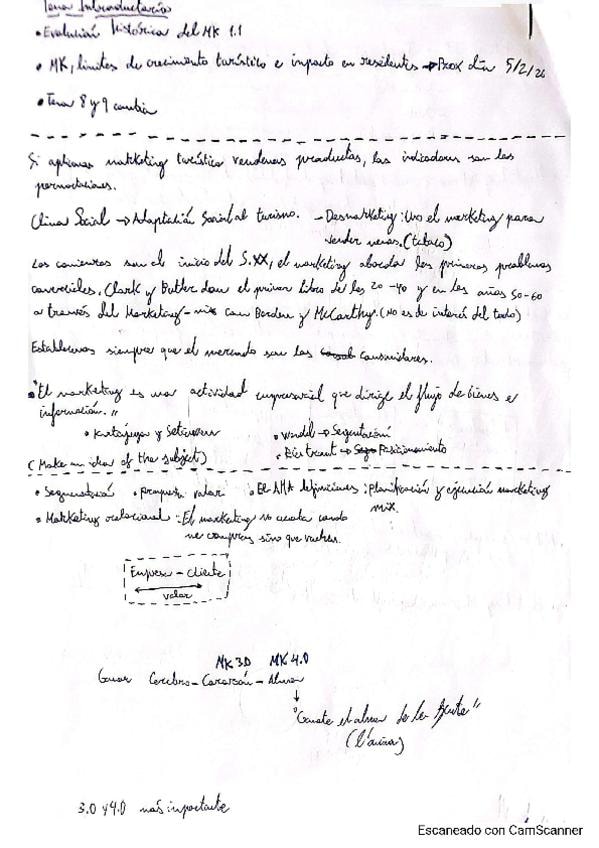 Tema Introductorio
• Evolución histórica del MK 1.1
• MK, límites de crecimiento turístico e impacto en residentes → Prox día 5/2/26
• Tema 8 y 9 cambia
Si aplicamos marketing turístico vendemos productos, los indicadores son las
pernoctaciones.
Clima Social → Adaptación Social al turismo. – Desmarketing: Uso el marketing para
vender menos. (tabaco)
Los comienzos son el inicio del S.XX, el marketing aborda los primeros problemas
comerciales. Clark y Butler dan el primer libro de los 20-40 y en los años 50-60
a través del Marketing-mix con Borden y McCarthy. (No es de interés del todo)
Establecemos siempre que el mercado son los consumidores.
• "El marketing es una actividad empresarial que dirige el flujo de bienes e
información."
• Wendel → Segmentación
• → Posicionamiento
(Make an idea of the subject)
• Segmentación • propuesta valor • El AMA definiciones: planificación y ejecución marketing
mix.
• Marketing relacional: El marketing no cuando
me compran sino que vuelvan.
Empresa – cliente
valor
MK 3.0 MK 4.0
Ganar Cerebro – Corazón – Alma
"Gánate el alma de la gente"
3.0 y 4.0 más importante
Escaneado con CamScanner